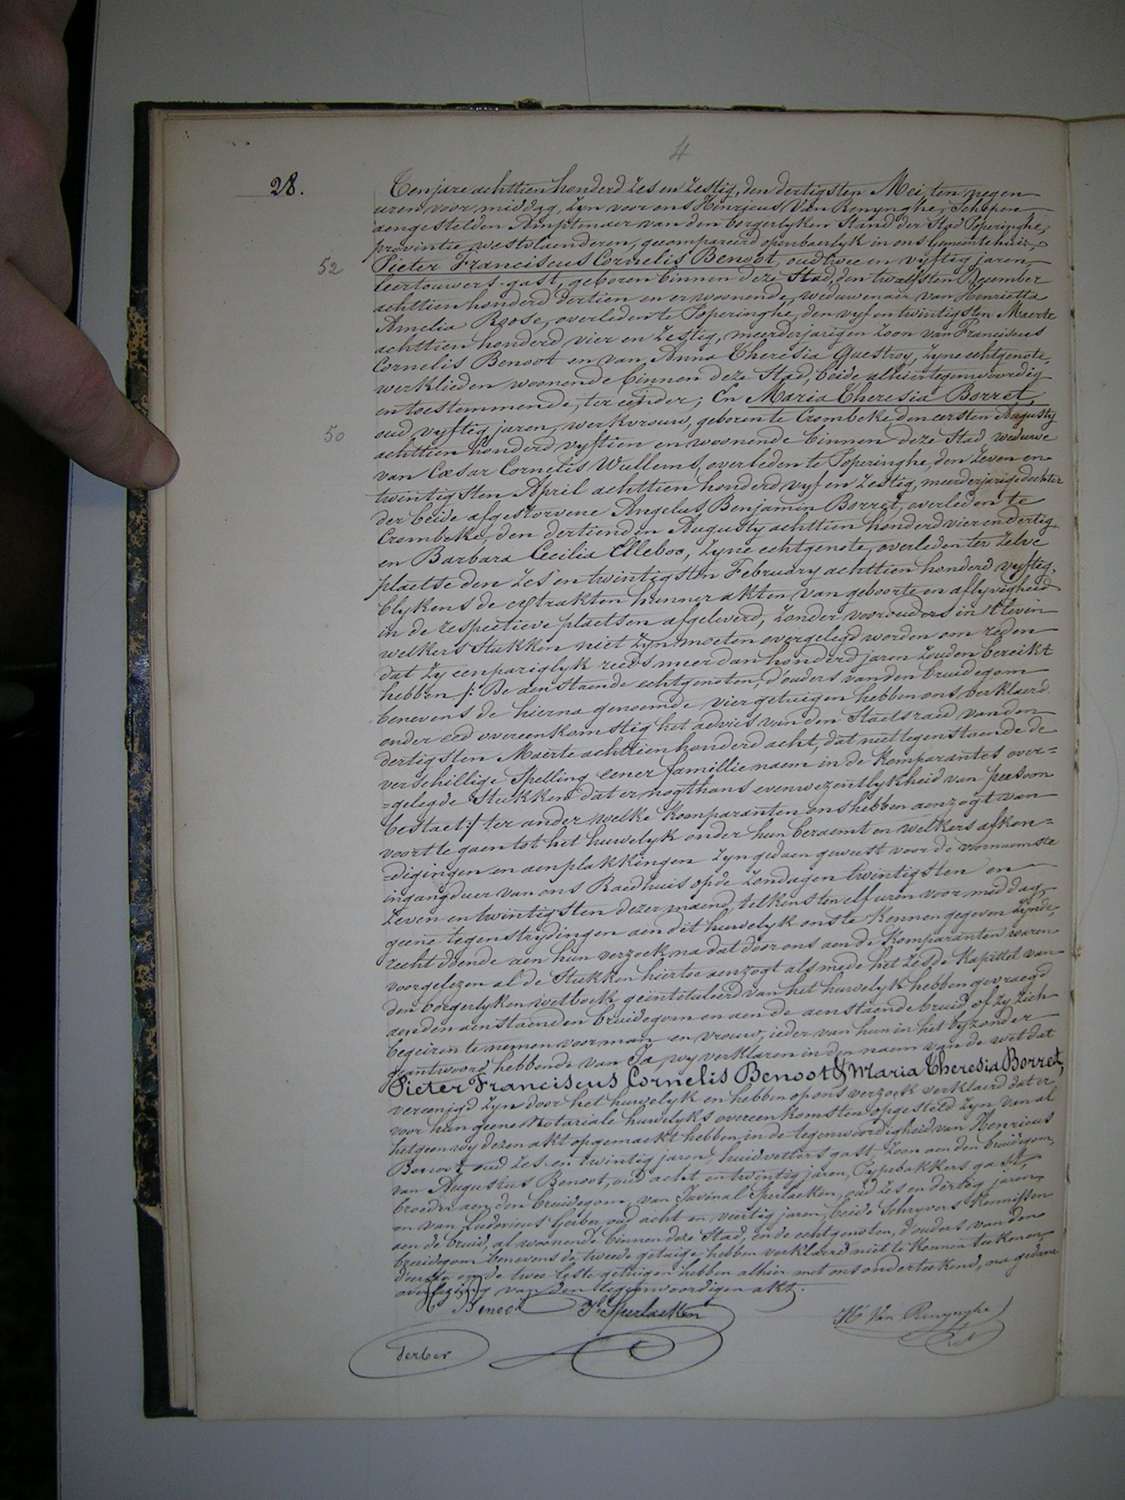 4
28.
Ten jare achttien honderd zes en zestig, den dertigsten Mei, ten negen
uren voormiddag, zyn voor ons Henricus Van Renynghe, Schepen
aengestelden Amptenaer van den borgerlyken Stand der Stad Poperinghe,
provintie westvlaenderen, gecompareerd openbaerlyk in ons Gemeentehuis,
52 Pieter Franciscus Cornelis Benoot, oud twee en vyftig jaren,
leertouwers-gast, geboren binnen deze Stad, den twalfsten December
achttien honderd dertien en er woonende, weduwenaer van Henrietta
Amelia Roose, overleden te Poperinghe, den vyf en twintigsten Maerte
achttien honderd vier en zestig, meerderjarigen zoon van Franciscus
Cornelis Benoot en van Anna Theresia Questroy, zyne echtgenote,
werklieden woonende binnen deze Stad, beide alhier tegenwoordig
en toestemmende, ter eender; En Maria Theresia Borret,
50 oud vyftig jaren, werkvrouw, geboren te Crombeke den eersten Augusty
achttien honderd vyftien en woonende binnen deze Stad weduwe
van Cæsar Cornelis Wullems, overleden te Poperinghe, den zeven en
twintigsten April achttien honderd vyf en zestig, meerderjarige dochter
der beide afgestorvene Angelus Benjamin Borret, overleden te
Crombeke, den dertienden Augusty achttien honderd vier en dertig
en Barbara Cecilia Elleboo, zyne echtgenote, overleden ter zelve
plaetse den zes en twintigsten February achttien honderd vyftig,
blykens de extrakten hunner akten van geboorte en aflyvigheid
in de respectieve plaetsen afgeleverd, zonder voorouders in 't leven
welkers stukken niet zyn moeten overgelegd worden om reden
dat zy eenpariglyk reeds meer dan honderd jaren zouden bereikt
hebben /: De aenstaende echtgenoten, d'ouders van den bruidegom
benevens de hierna genoemde vier getuigen hebben ons verklaerd
onder eed overeenkomstig het advies van den Staetsraed van den
dertigsten Maerte achttien honderd acht, dat niettegenstaende de
verschillige Spelling eener famillienaem in de komparantes over=
=gelegde Stukken dat er nogthans evenwezentlykheid van persoon
bestaet:/ ter ander welke komparanten ons hebben aenzogt van
voort te gaen tot het huwelyk onder hun beraemt en welkers afkon=
=digingen en aenplakkingen zyn gedaen geweest voor de voornaemste
ingangdeur van ons Raedhuis op de zondagen twintigsten en
zeven en twintigsten dezer maend, telkens ten elf uren voormiddag,
geene tegenstrydingen aen dit huwelyk ons te kennen gegeven zynde,
recht doende aen hun verzoek na dat door ons aen de komparanten waren
voorgelezen al de Stukken hiertoe aenzogt als mede het zesde kapittel van
den borgerlyken wetboek geintituleerd van het huwelyk hebben gevraegd
aen den aenstaenden bruidegom en aen de aenstaende bruid of zy zich
begeiren te nemen voor man en vrouw, ieder van hun in het byzonder
geantwoord hebbende van Ja, wy verklaren in den naem van de wet dat
Pieter Franciscus Cornelis Benoot & Maria Theresia Borret,
vereenigd zyn door het huwelyk en hebben op ons verzoek verklaerd dat er
voor hun geene notariale huwelyks overeenkomsten opgesteld zyn, van al
hetgeen wy dezen akt opgemaekt hebben in de tegenwoordigheid van Henricus
Benoot, oud zes en twintig jaren, huidvetters gast zoon aen den bruidegom,
van Augustus Benoot, oud acht en twintig jaren, Pypbakkers gast,
broeder aen den bruidegom, van Juvenal Sperlaeken, oud zes en dertig jaren,
en van Ludovicus Gerber, oud acht en veertig jaren, beide Schryvers kennissen
aen de bruid, al woonende binnen deze Stad, en de echtgenoten, d'ouders van den
bruidegom benevens de tweede getuige, hebben verklaerd niet te konnen teekenen
de eerste en de twee leste getuigen hebben alhier met ons onderteekend, na gedane
voorlezing van den tegenwoordigen akt.
H Benoot J. Sperlaeken H Van Renynghe
Gerber